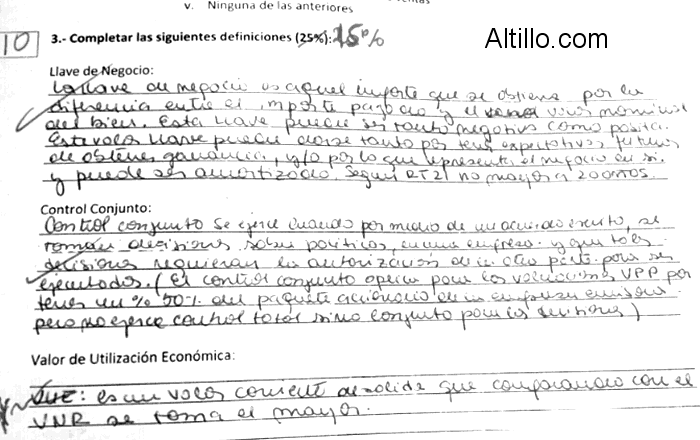 v. Ninguna de las anteriores
10
3.- Completar las siguientes definiciones (25%): 15%
Altillo.com
Llave de Negocio:
La llave de negocio es aquel importe que se obtiene por la
diferencia entre el importe pagado y el valor nominal
del bien. Esta llave puede ser tanto negativa como positi.
Este valor llave puede darse tanto por tener expectativas futuras
de obtener ganancia, y/o por lo que representa el negocio en si.
y puede ser amortizado. Según RT21 no mayor a 20 años.
Control Conjunto:
Control conjunto se ejerce cuando por medio de un acuerdo escrito, se
toman decisiones sobre politicas, en una empresa. y que tales
decisiones requieran la autorización de la otra parte para ser
ejecutadas. (El control conjunto aplica para las valuaciones VPP por
tener un % 50% del paquete accionario de la empresa emisora.
pero no ejerce control total sino conjunto para las decisiones)
Valor de Utilización Económica:
VUE: es un valor corriente de salida que comparando con el
VNR se toma el mayor.